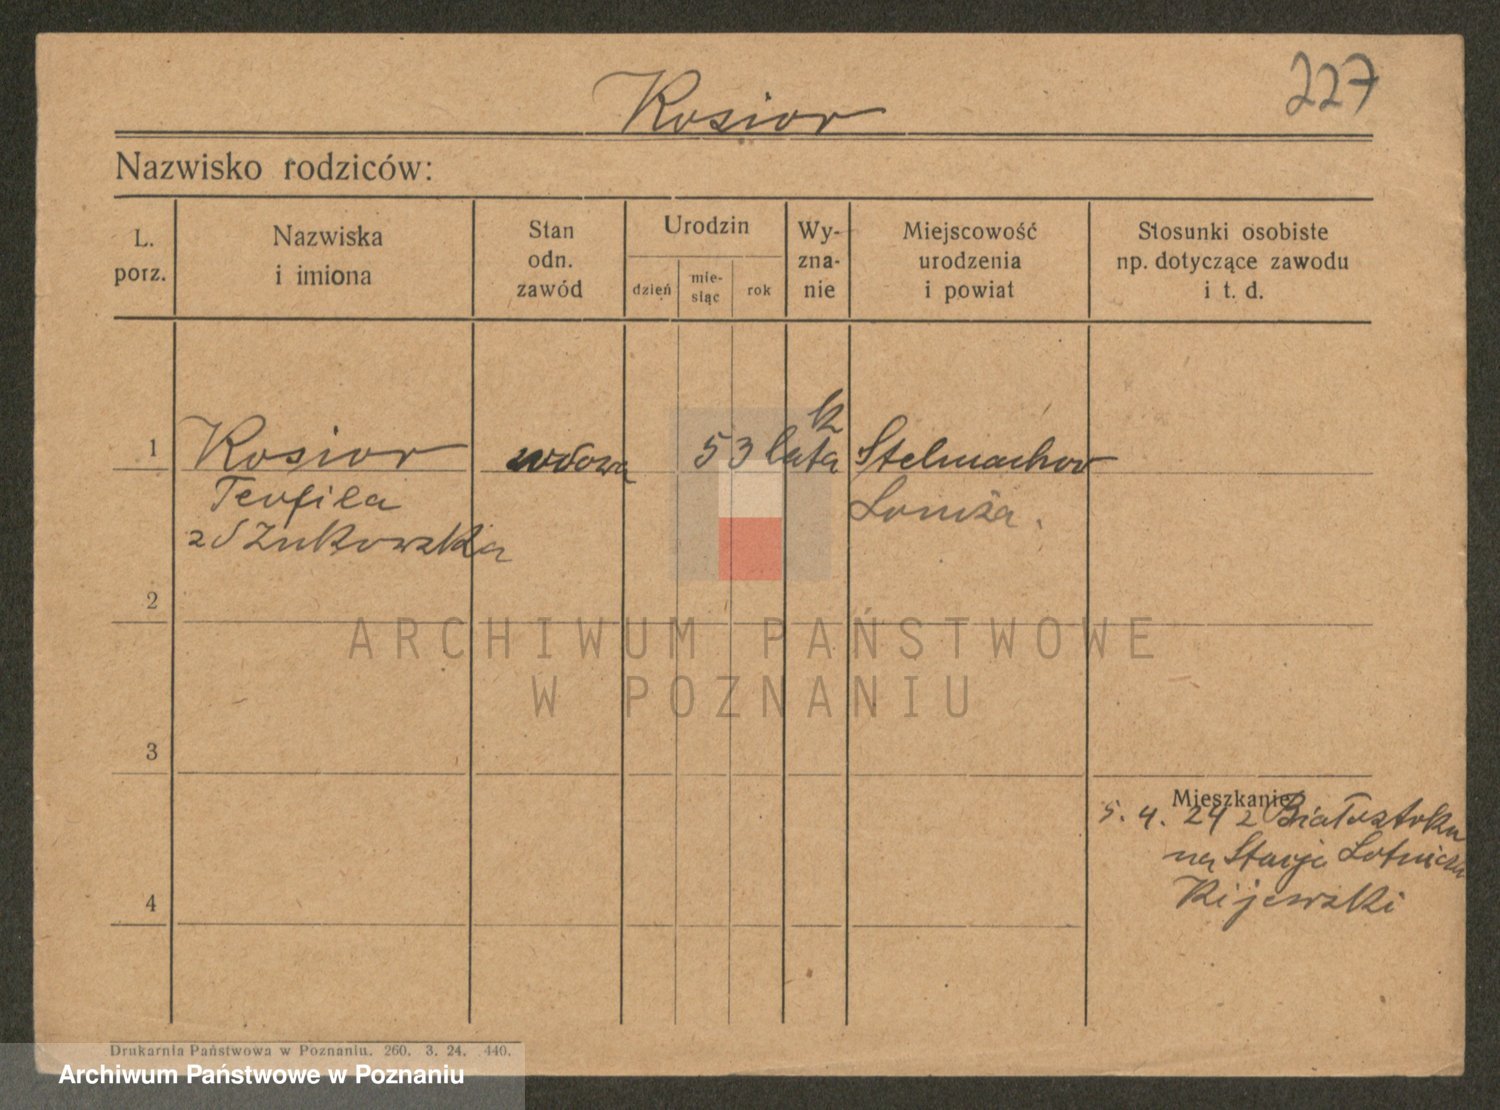 227
Kosior
Nazwisko rodziców:
L. porz.
Nazwiska i imiona
Stan odn. zawód
Urodzin
dzień
mie- siąc
rok
Wy- zna- nie
Miejscowość urodzenia i powiat
Stosunki osobiste np. dotyczące zawodu i t. d.
1 Kosior wdowa 53 lata k Stelmachov
Teofila Łomża.
zd Żukowska
2
ARCHIWUM PAŃSTWOWE
W POZNANIU
3
Mieszkanie
5. 4. 24 z Białostoku
na Stacje
Kijewski
4
Drukarnia Państwowa w Poznaniu. 260. 3. 24. 440.
Archiwum Państwowe w Poznaniu